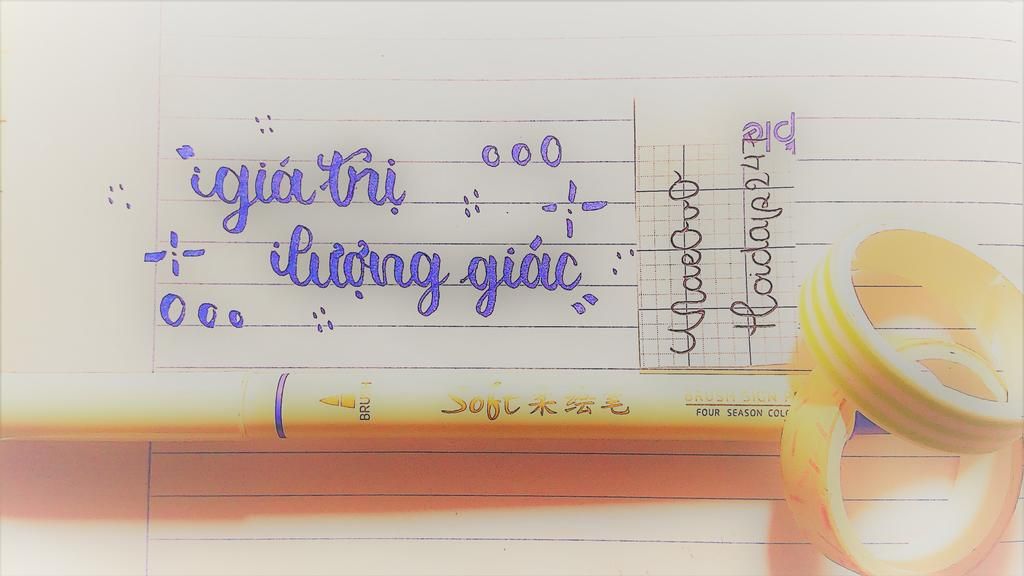 giá trị
lượng giác
Hoidap247
BRUSH
Soft 采绘笔
BRUSH SIGN
FOUR SEASON COLO